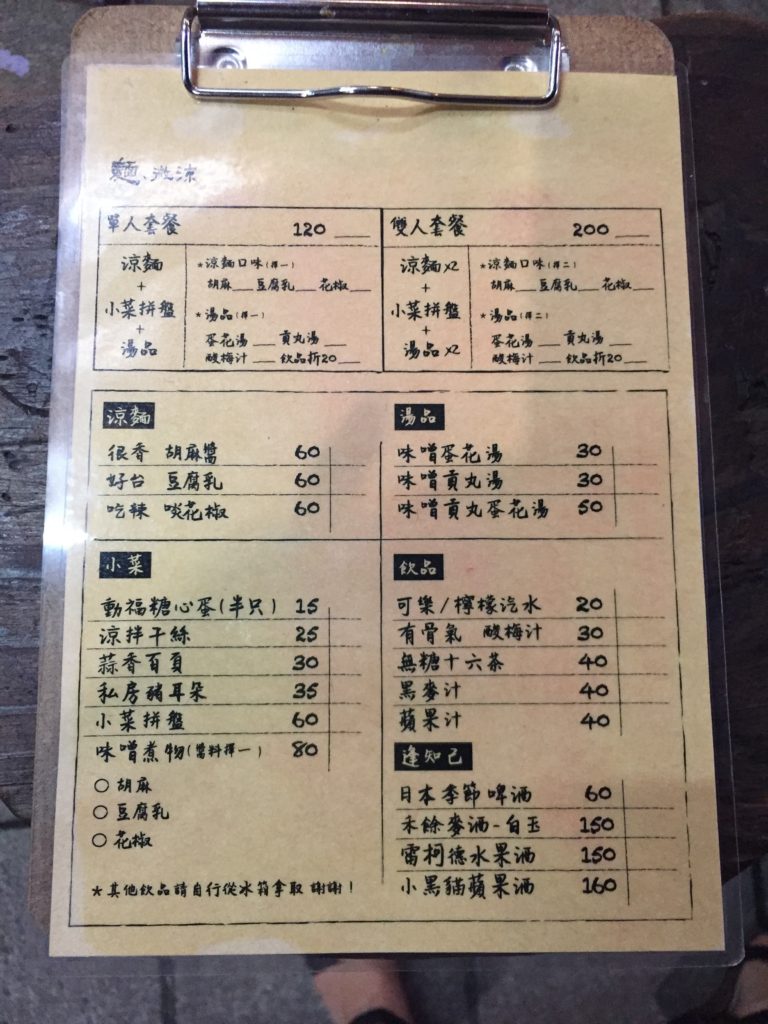 麵、微涼
單人套餐 120
涼麵
+
小菜拼盤
+
湯品
*涼麵口味(擇一)
胡麻 豆腐乳 花椒
*湯品(擇一)
蛋花湯 貢丸湯
酸梅汁 飲品折20
雙人套餐 200
涼麵x2
+
小菜拼盤
+
湯品x2
*涼麵口味(擇二)
胡麻 豆腐乳 花椒
*湯品(擇二)
蛋花湯 貢丸湯
酸梅汁 飲品折20
涼麵
很香 胡麻醬 60
好台 豆腐乳 60
吃辣 啖花椒 60
湯品
味噌蛋花湯 30
味噌貢丸湯 30
味噌貢丸蛋花湯 50
小菜
動福糖心蛋(半只) 15
涼拌干絲 25
蒜香百頁 30
私房豬耳朵 35
小菜拼盤 60
味噌煮物(醬料擇一) 80
○ 胡麻
○ 豆腐乳
○ 花椒
*其他飲品請自行從冰箱拿取 謝謝!
飲品
可樂/檸檬汽水 20
有骨氣 酸梅汁 30
無糖十六茶 40
黑麥汁 40
蘋果汁 40
逢知己
日本季節啤酒 60
禾餘麥酒-白玉 150
雷柯德水果酒 150
小黑貓蘋果酒 160